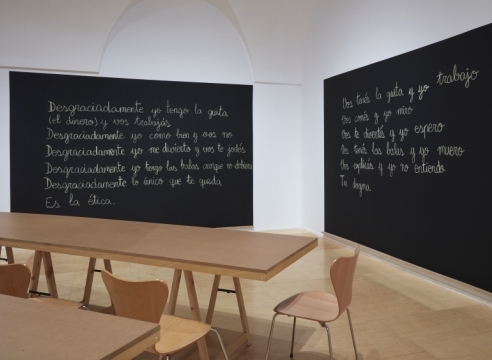 Desgraciadamente yo tengo la guita
(el dinero) y vos trabajás
Desgraciadamente yo como bien y vos no
Desgraciadamente yo me divierto y vos te jodés
Desgraciadamente yo tengo las balas aunque no debiera
Desgraciadamente lo único que te queda
Es la ética.
Vos tenés la guita y yo trabajo
Vos comés y yo miro
Vos te divertís y yo espero
Vos tenés las balas y yo muero
Vos explicás y yo no entiendo
Tu dogma.